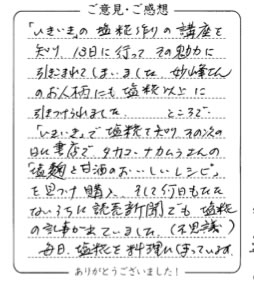 ご意見・ご感想
「いきいき」の塩糀作りの講座を
知り、13日に行って その魅力に
引きこまれてしまいました。妙峰さん
のお人柄にも塩糀以上に
引きつけられました。 ところで
「いきいき」で塩糀を知り その次の
日に書店で タカコ・ナカムラさんの
「塩麹と甘酒のおいしいレシピ」
を見つけ購入、そして何日もたた
ないうちに読売新聞でも 塩糀
の記事が出ていました。(不思議)
毎日、塩糀を料理に使っています。
ありがとうございました！